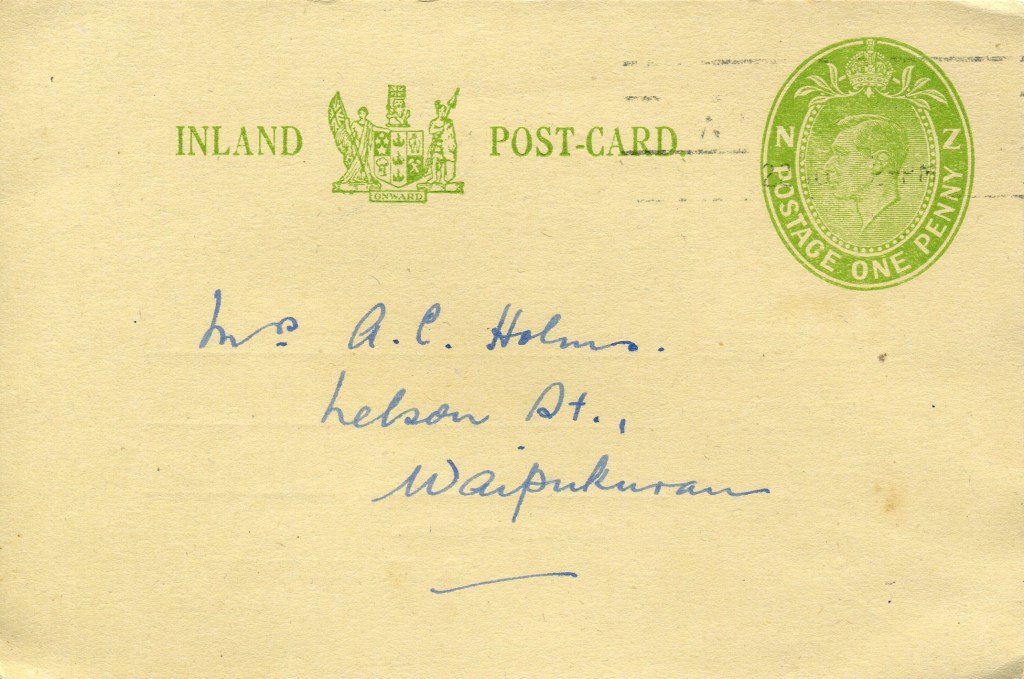 INLAND POST-CARD
ONWARD
N Z
POSTAGE ONE PENNY
Mrs A. C. Holms.
Nelson St.,
Waipukurau